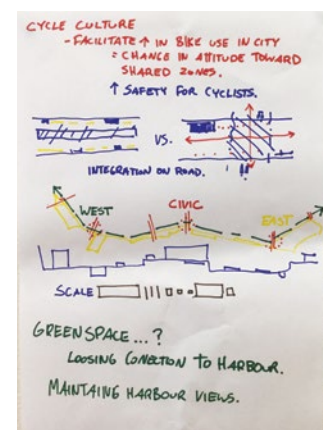 CYCLE CULTURE
- FACILITATE ↑ IN BIKE USE IN CITY
= CHANGE IN ATTITUDE TOWARD
SHARED ZONES.
↑ SAFETY FOR CYCLISTS.
VS.
INTEGRATION ON ROAD.
WEST
CIVIC
EAST
SCALE
GREENSPACE...?
LOOSING CONECTION TO HARBOUR.
MAINTAINE HARBOUR VIEWS.